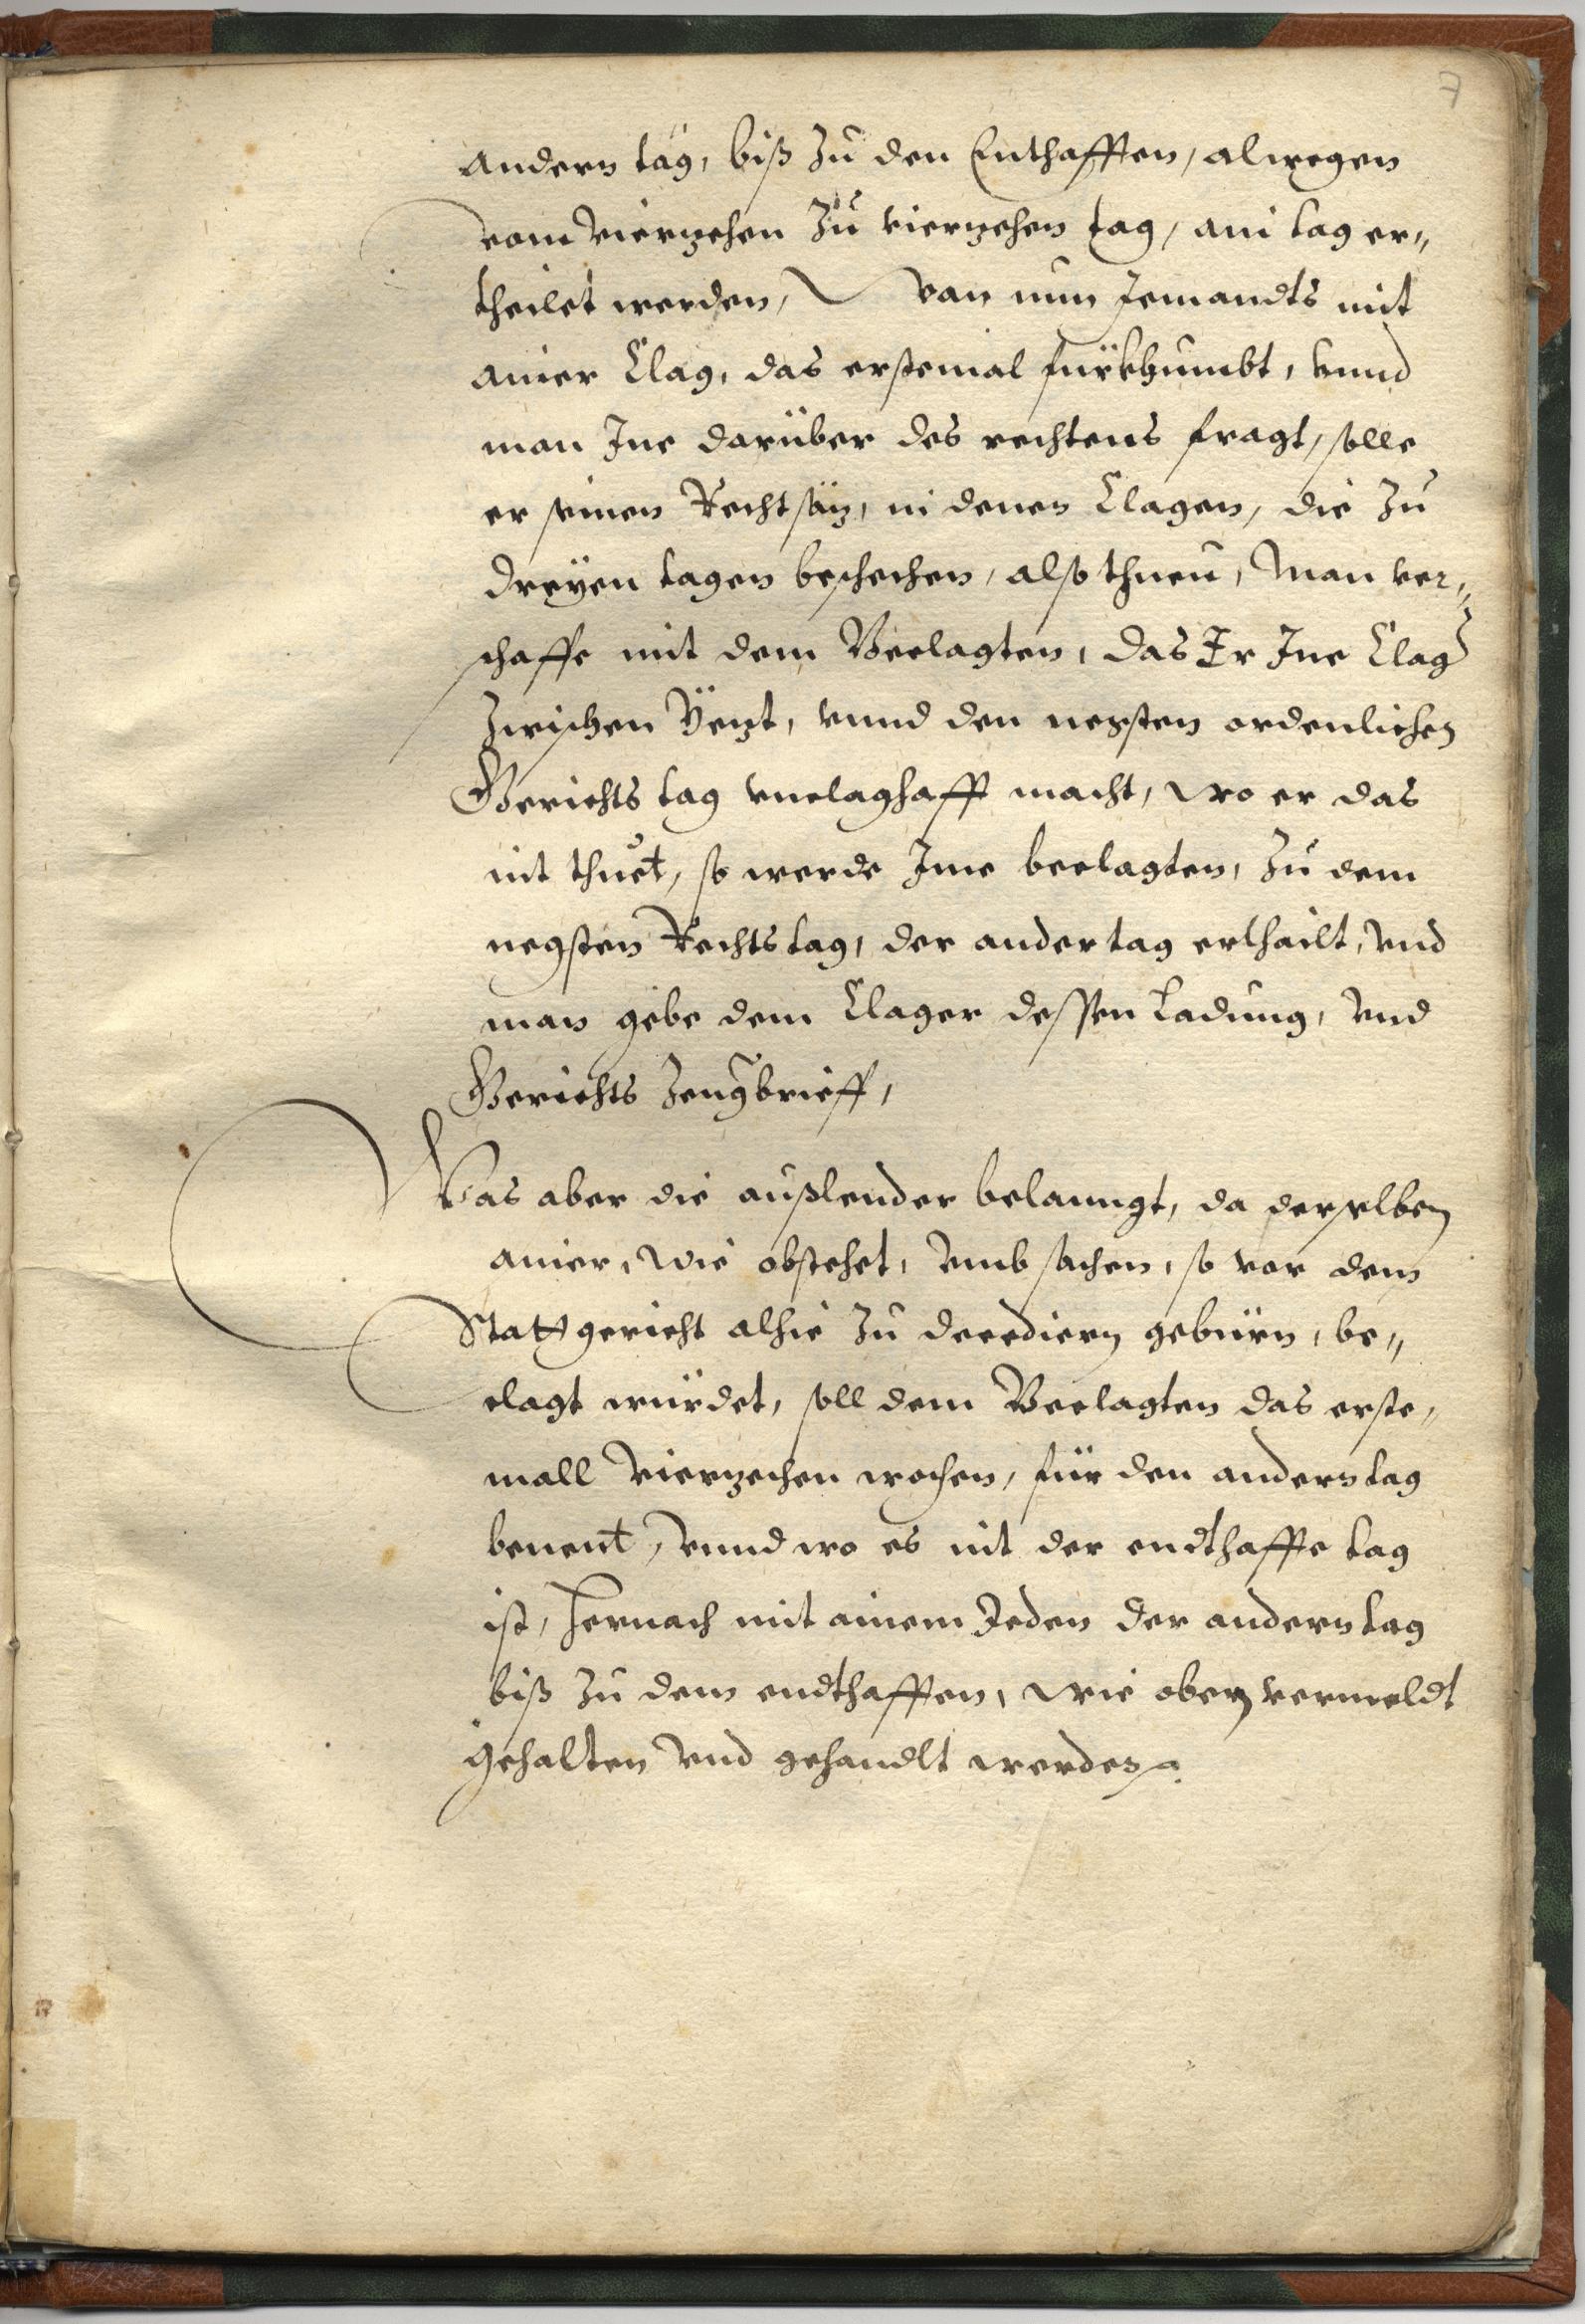 7
andern tag, biß zu den Enthafften, alwegen
vom vierzehen zu vierzehen tag, ain tag er„
theilet werden, Wan nun Jemandts mit
ainer Clag, das erstemal fürkhumbt, vnnd
man Jne darüber des rechtens fragt, solle
er seinen Rechtsaz, in denen Clagen, die zu
dreÿen tagen beschechen, also thuen, Man ver„
schaffe mit dem Beclagten, das Er Jne Clag
zwischen Yezt, vnnd den negsten ordenlichen
Gerichts tag vnclaghafft macht, wo er das
nit thuet, so werde Jme beclagten, zu dem
negsten Rechts tag, der ander tag erthailt, vnd
man gebe dem Clager dessen Ladung, vnd
Gerichts Zeugbrieff,
Was aber die außlender belanngt, da derselben
ainer, wie obstehet, vmb sachen, so vor dem
Stattgericht alhie zu decediern gebürn, be„
clagt würdet, soll dem Beclagten das erste,
mall vierzechen wochen, für den andern tag
benent, vnnd wo es nit der endthaffte tag
ist, hernach mit ainem Jeden der andern tag
biß zu dem endthafften, wie oben vermeldt
gehalten vnd gehandlt werden.